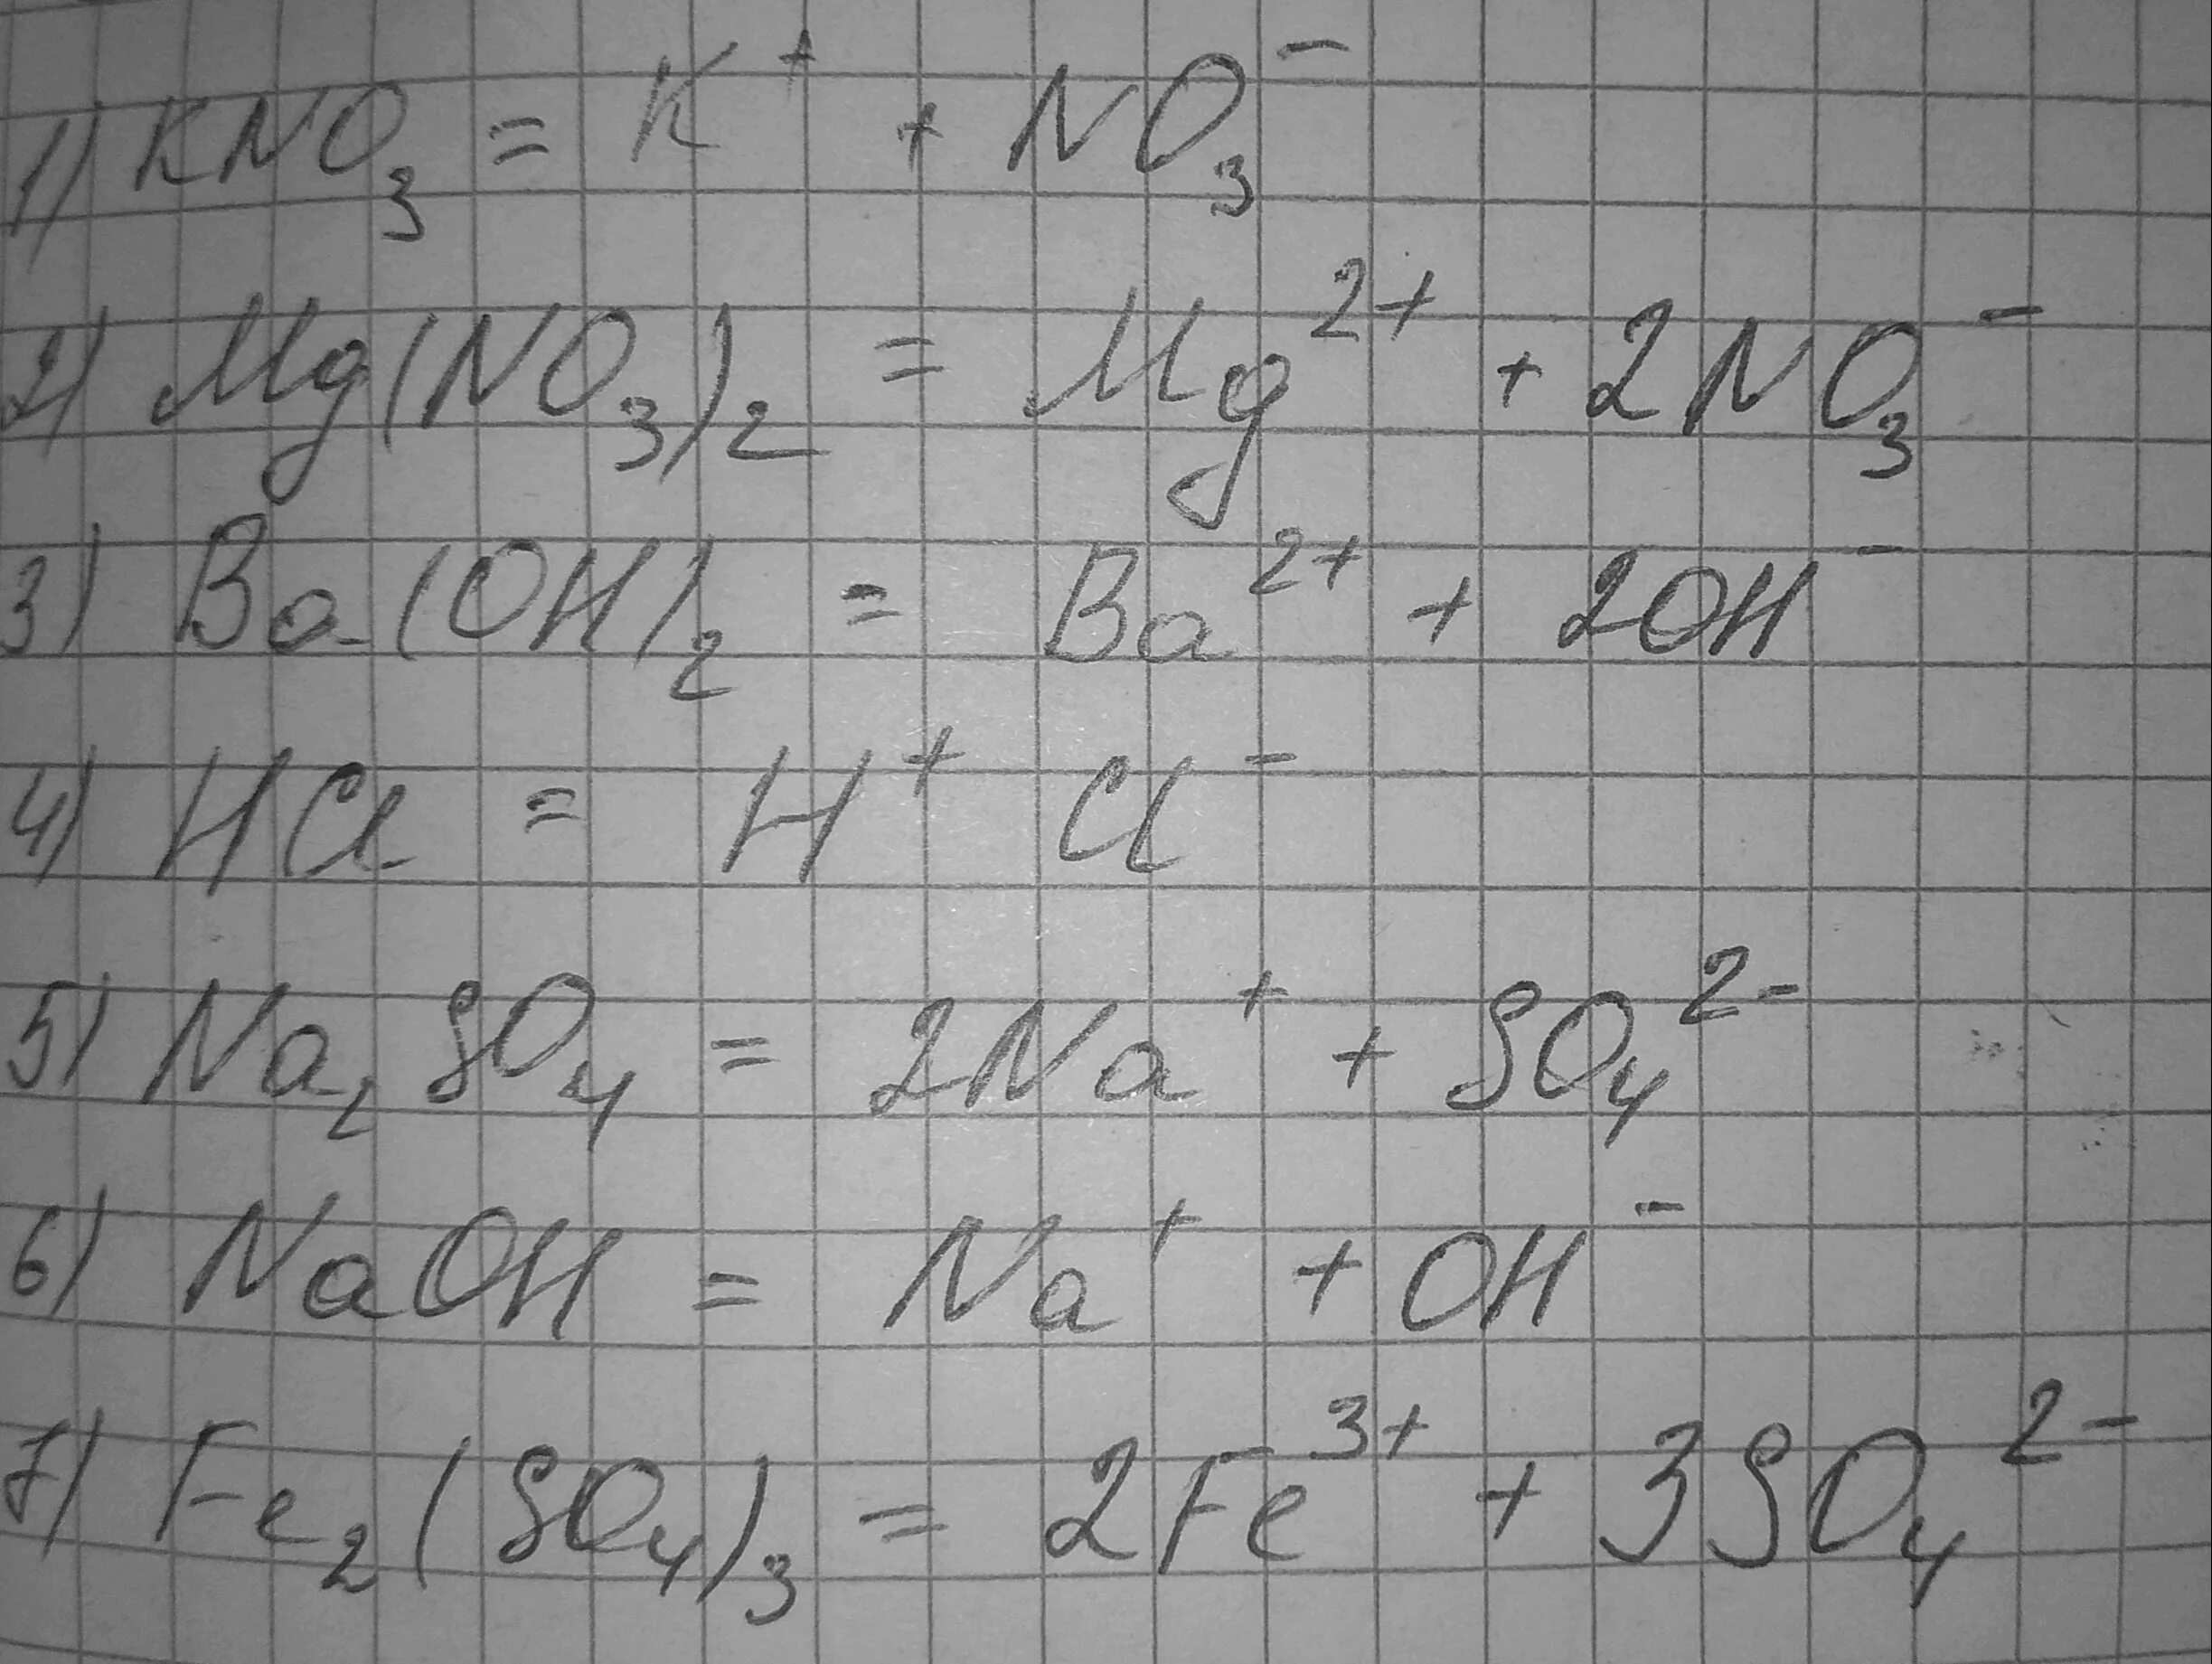 1) KNO₃ = K⁺ + NO₃⁻
2) Mg(NO₃)₂ = Mg²⁺ + 2NO₃⁻
3) Ba(OH)₂ = Ba²⁺ + 2OH⁻
4) HCl = H⁺ Cl⁻
5) Na₂SO₄ = 2Na⁺ + SO₄²⁻
6) NaOH = Na⁺ + OH⁻
7) Fe₂(SO₄)₃ = 2Fe³⁺ + 3SO₄²⁻